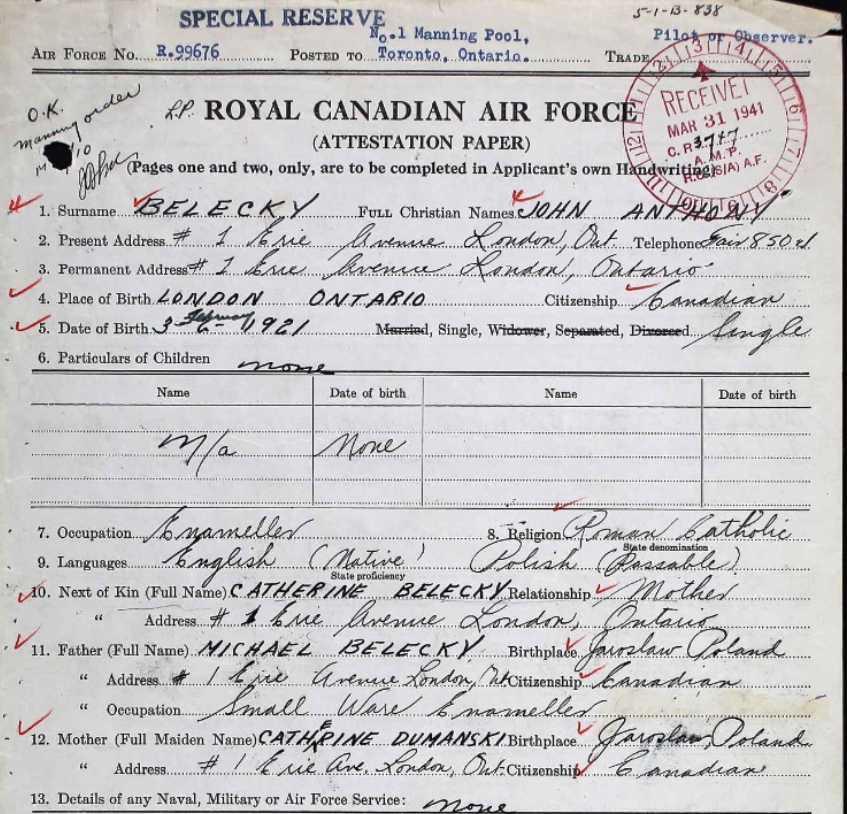 5-1-B-838
SPECIAL RESERVE
No.1 Manning Pool, Pilot or Observer.
AIR FORCE No. R.99676 POSTED TO Toronto, Ontario. TRADE
O.K.
Manning order
L.P. ROYAL CANADIAN AIR FORCE
(ATTESTATION PAPER)
(Pages one and two, only, are to be completed in Applicant's own Handwriting)
RECEIVE
MAR 31 1941
C. R. 3747
A. M. P.
1. Surname BELECKY FULL Christian Names JOHN ANTHONY
2. Present Address # 1 Erie Avenue London, Ont. Telephone Fair 850
3. Permanent Address # 1 Erie Avenue London, Ontario
4. Place of Birth LONDON ONTARIO Citizenship Canadian
5. Date of Birth 3 February 1921 Married, Single, Widower, Separated, Divorced Single
6. Particulars of Children none
Name Date of birth Name Date of birth
N/a None
7. Occupation Enameller 8. Religion Roman Catholic
State denomination
9. Languages English (Native) Polish (Passable)
State proficiency
10. Next of Kin (Full Name) CATHERINE BELECKY Relationship Mother
" Address # 1 Erie Avenue London, Ontario
11. Father (Full Name) MICHAEL BELECKY Birthplace Jaroslaw Poland
" Address # 1 Erie Avenue London, Ont. Citizenship Canadian
" Occupation Small Ware Enameller
12. Mother (Full Maiden Name) CATHERINE DUMANSKI Birthplace Jaroslaw, Poland
" Address # 1 Erie Ave. London, Ont. Citizenship Canadian
13. Details of any Naval, Military or Air Force Service: none